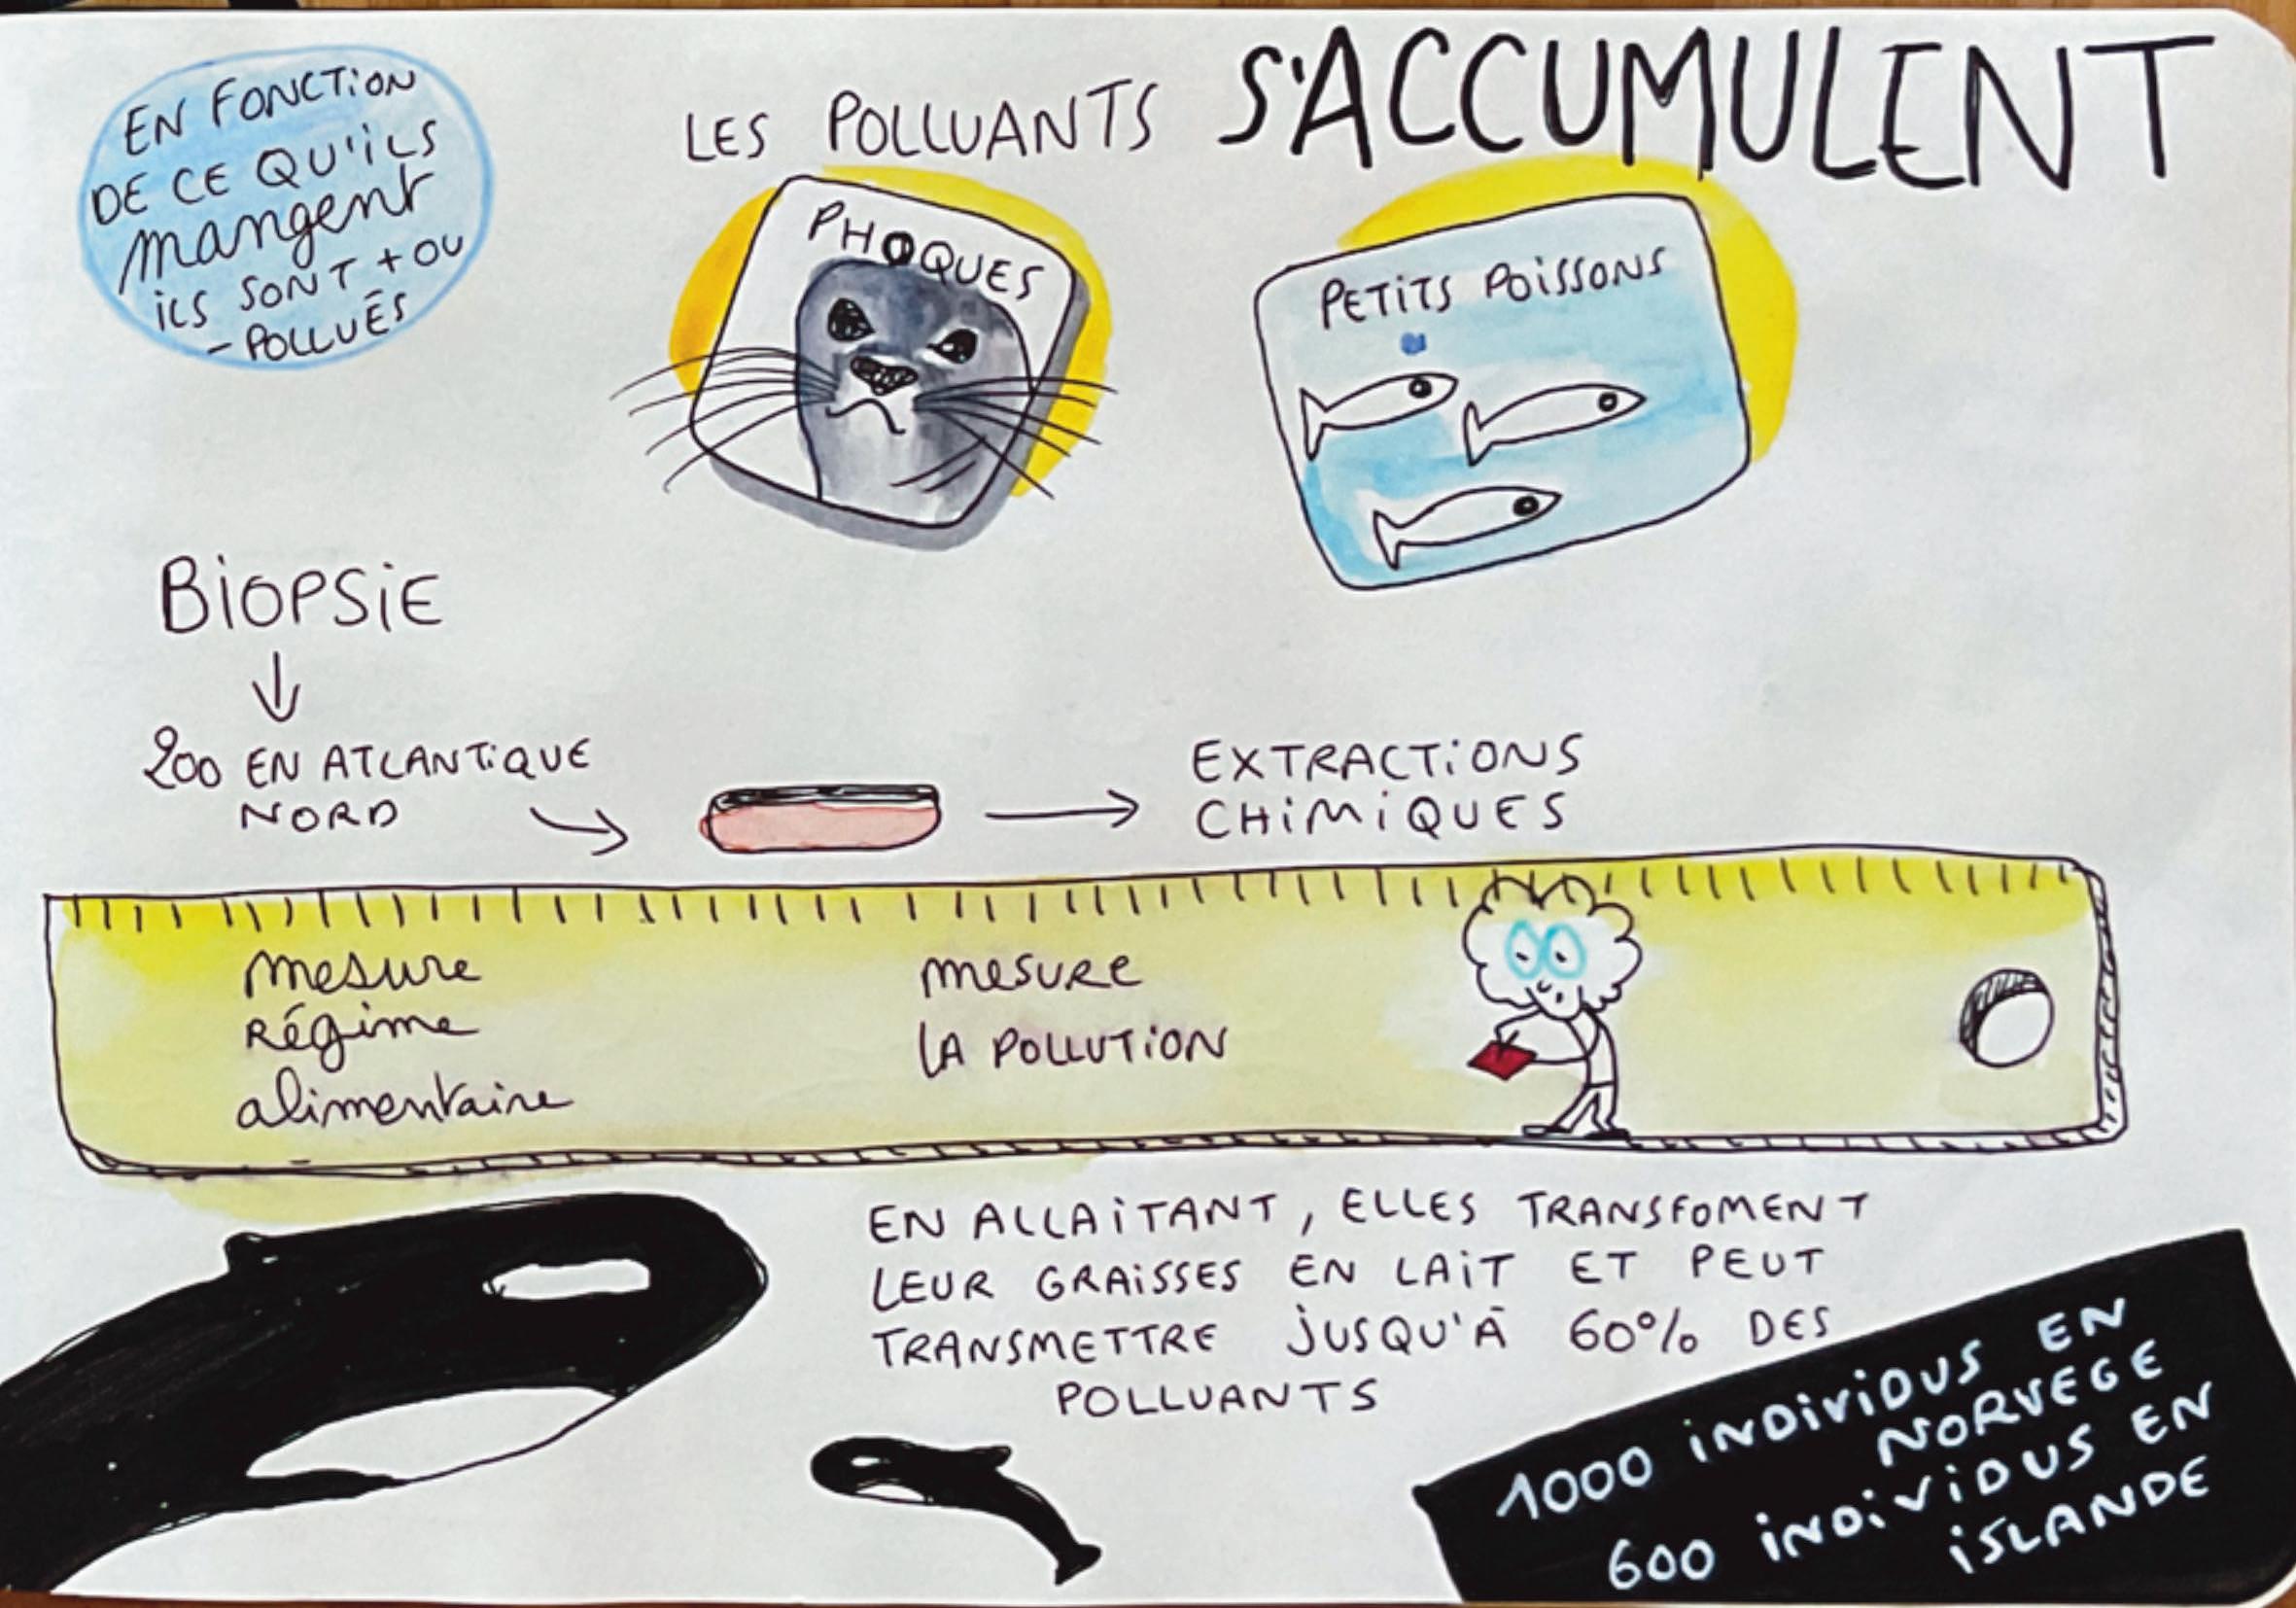 EN FONCTION
DE CE QU'ILS
mangent
ILS SONT + OU
- POLLUÉS
LES POLLUANTS S'ACCUMULENT
PHOQUES
PETITS POISSONS
BIOPSIE
200 EN ATLANTIQUE
NORD
EXTRACTIONS
CHIMIQUES
mesure
Régime
alimentaire
mesure
LA POLLUTION
EN ALLAITANT, ELLES TRANSFOMENT
LEUR GRAISSES EN LAIT ET PEUT
TRANSMETTRE JUSQU'À 60% DES
POLLUANTS
1000 INDIVIDUS EN
NORVEGE
600 INDIVIDUS EN
ISLANDE